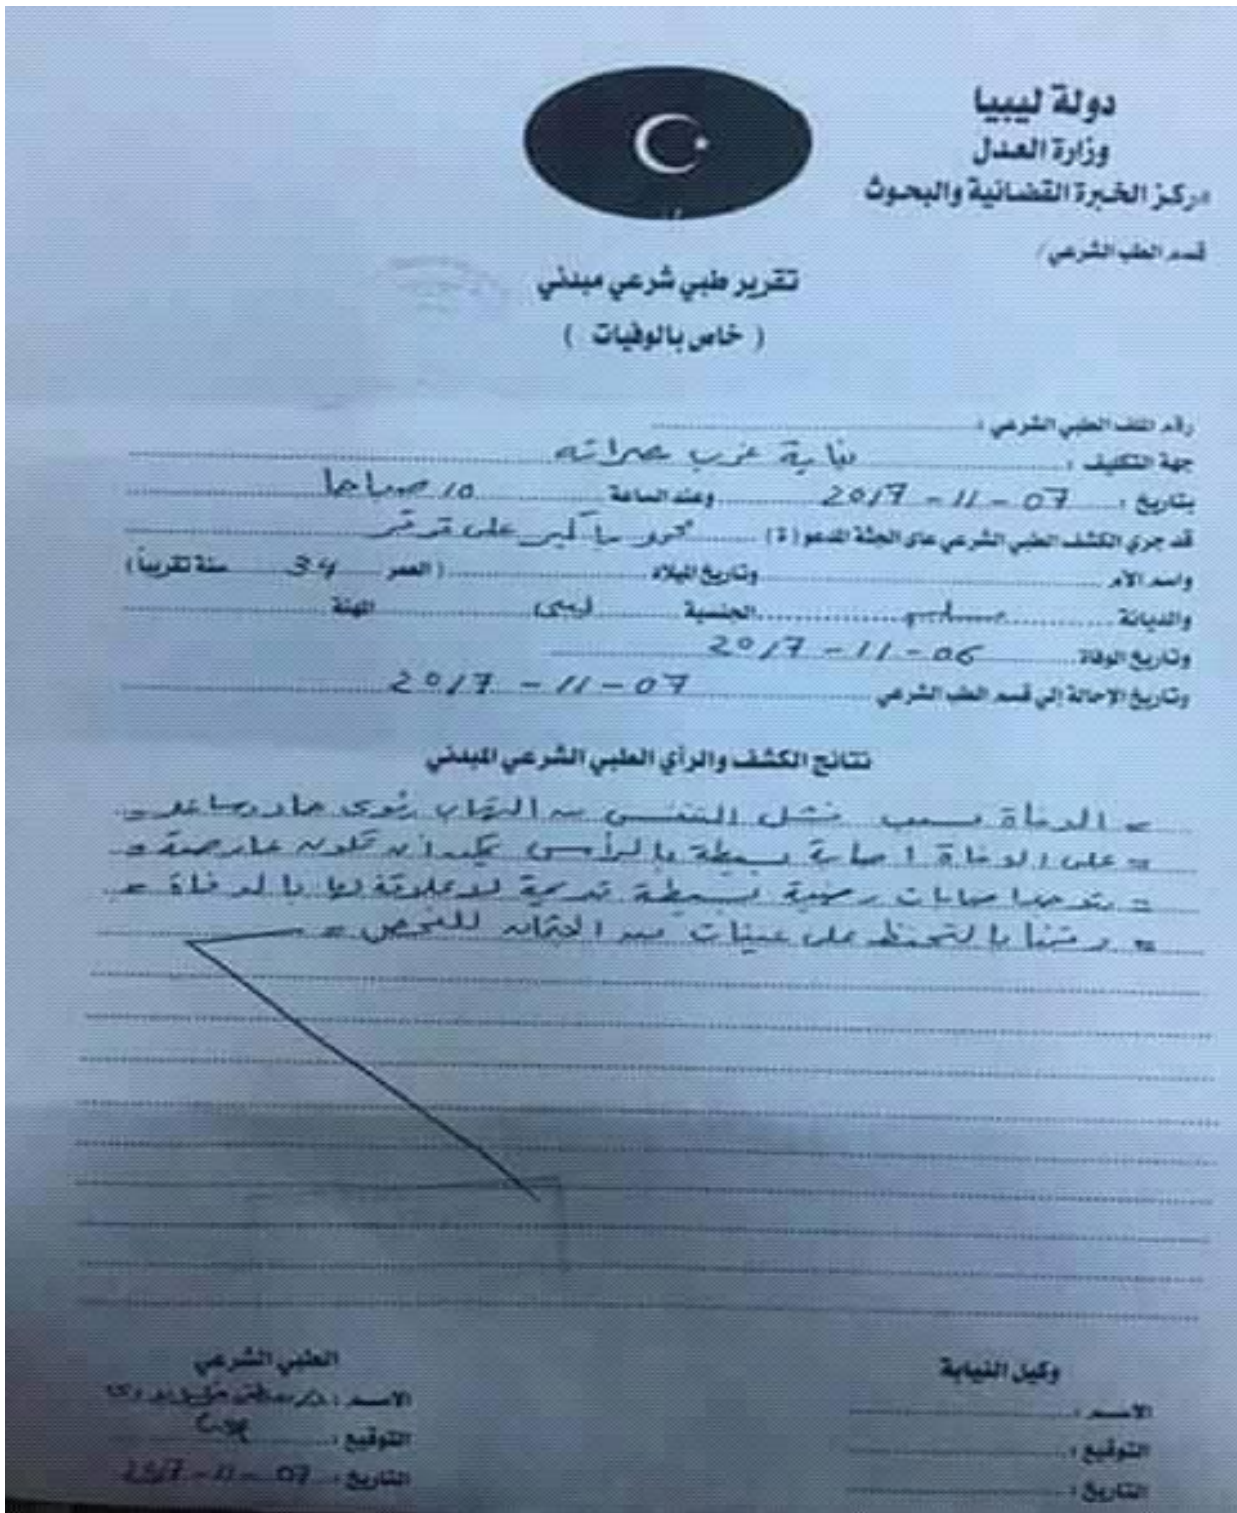 دولة ليبيا
وزارة العدل
مركز الخبرة القضائية والبحوث
قسم الطب الشرعي /
تقرير طبي شرعي مبدئي
( خاص بالوفيات )
رقم الملف الطبي الشرعي :
جهة التكليف : نيابة غرب مصراته
بتاريخ : 07 - 11 - 2017 وعند الساعة 10 صباحا
قد جرى الكشف الطبي الشرعي على الجثة المدعو ( ة ) على
واسم الأم وتاريخ الميلاد ( العمر 34 سنة تقريباً )
والديانة مسلم الجنسية ليبي المهنة
وتاريخ الوفاة 06 - 11 - 2017
وتاريخ الإحالة إلى قسم الطب الشرعي 07 - 11 - 2017
نتائج الكشف والرأي الطبي الشرعي المبدئي
= الوفاة بسبب فشل التنفس من التهاب رئوي حاد وساعد =
= على الوفاة اصابة بسيطة بالرأس يمكن أن تكون عارضة =
= يتوجد اصابات رضية بسيطة قديمة لا علاقة لها بالوفاة =
= وقمنا بالتحفظ على عينات من الجثمان للفحص =
وكيل النيابة
الاسم :
التوقيع :
التاريخ :
الطبي الشرعي
الاسم :
التوقيع :
التاريخ : 07 - 11 - 2017